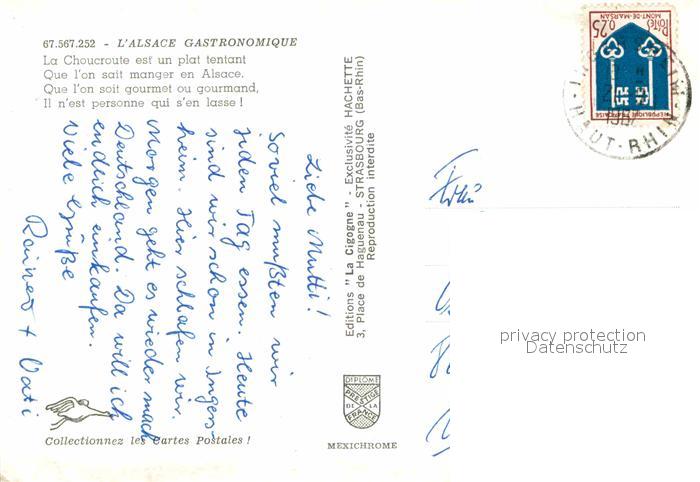 67.567.252 - L'ALSACE GASTRONOMIQUE
La Choucroute est un plat tentant
Que l'on sait manger en Alsace.
Que l'on soit gourmet ou gourmand,
Il n'est personne qui s'en lasse !
Liebe Mutti!
Soviel mußten wir
jeden Tag essen. Heute
sind wir schon in Ingers-
heim. Hier schlafen wir.
Morgen geht es wieder nach
Deutschland. Da will ich
endlich einkaufen.
Viele Grüße
Rainer + Vati
Collectionnez les Cartes Postales !
Editions " La Cigogne " - Exclusivité HACHETTE
3, Place de Haguenau - STRASBOURG (Bas-Rhin)
Reproduction interdite
DIPLOME
PRESTIGE
DE LA
FRANCE
MEXICHROME
0,25
POSTES
MONT-DE-MARSAN
REPUBLIQUE FRANCAISE
1967
HAUT-RHIN
Frau
privacy protection
Datenschutz